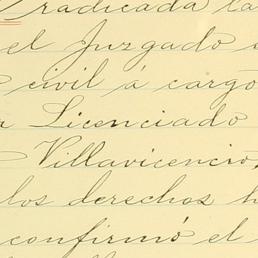 radicada la
el Juzgado
civil á cargo
Licenciado
Villavicencio,
los derechos h
confirmó el